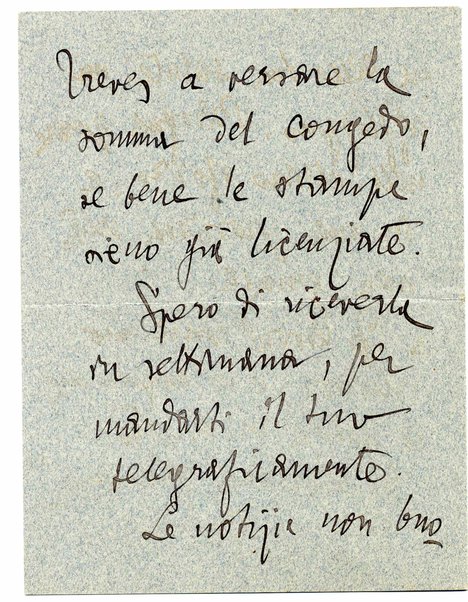 Treves a versare la
somma del congedo,
se bene le stampe
sieno già licenziate.
Spero di riceverla
in settimana, per
mandarti il tuo
telegraficamente.
Le notizie non buo